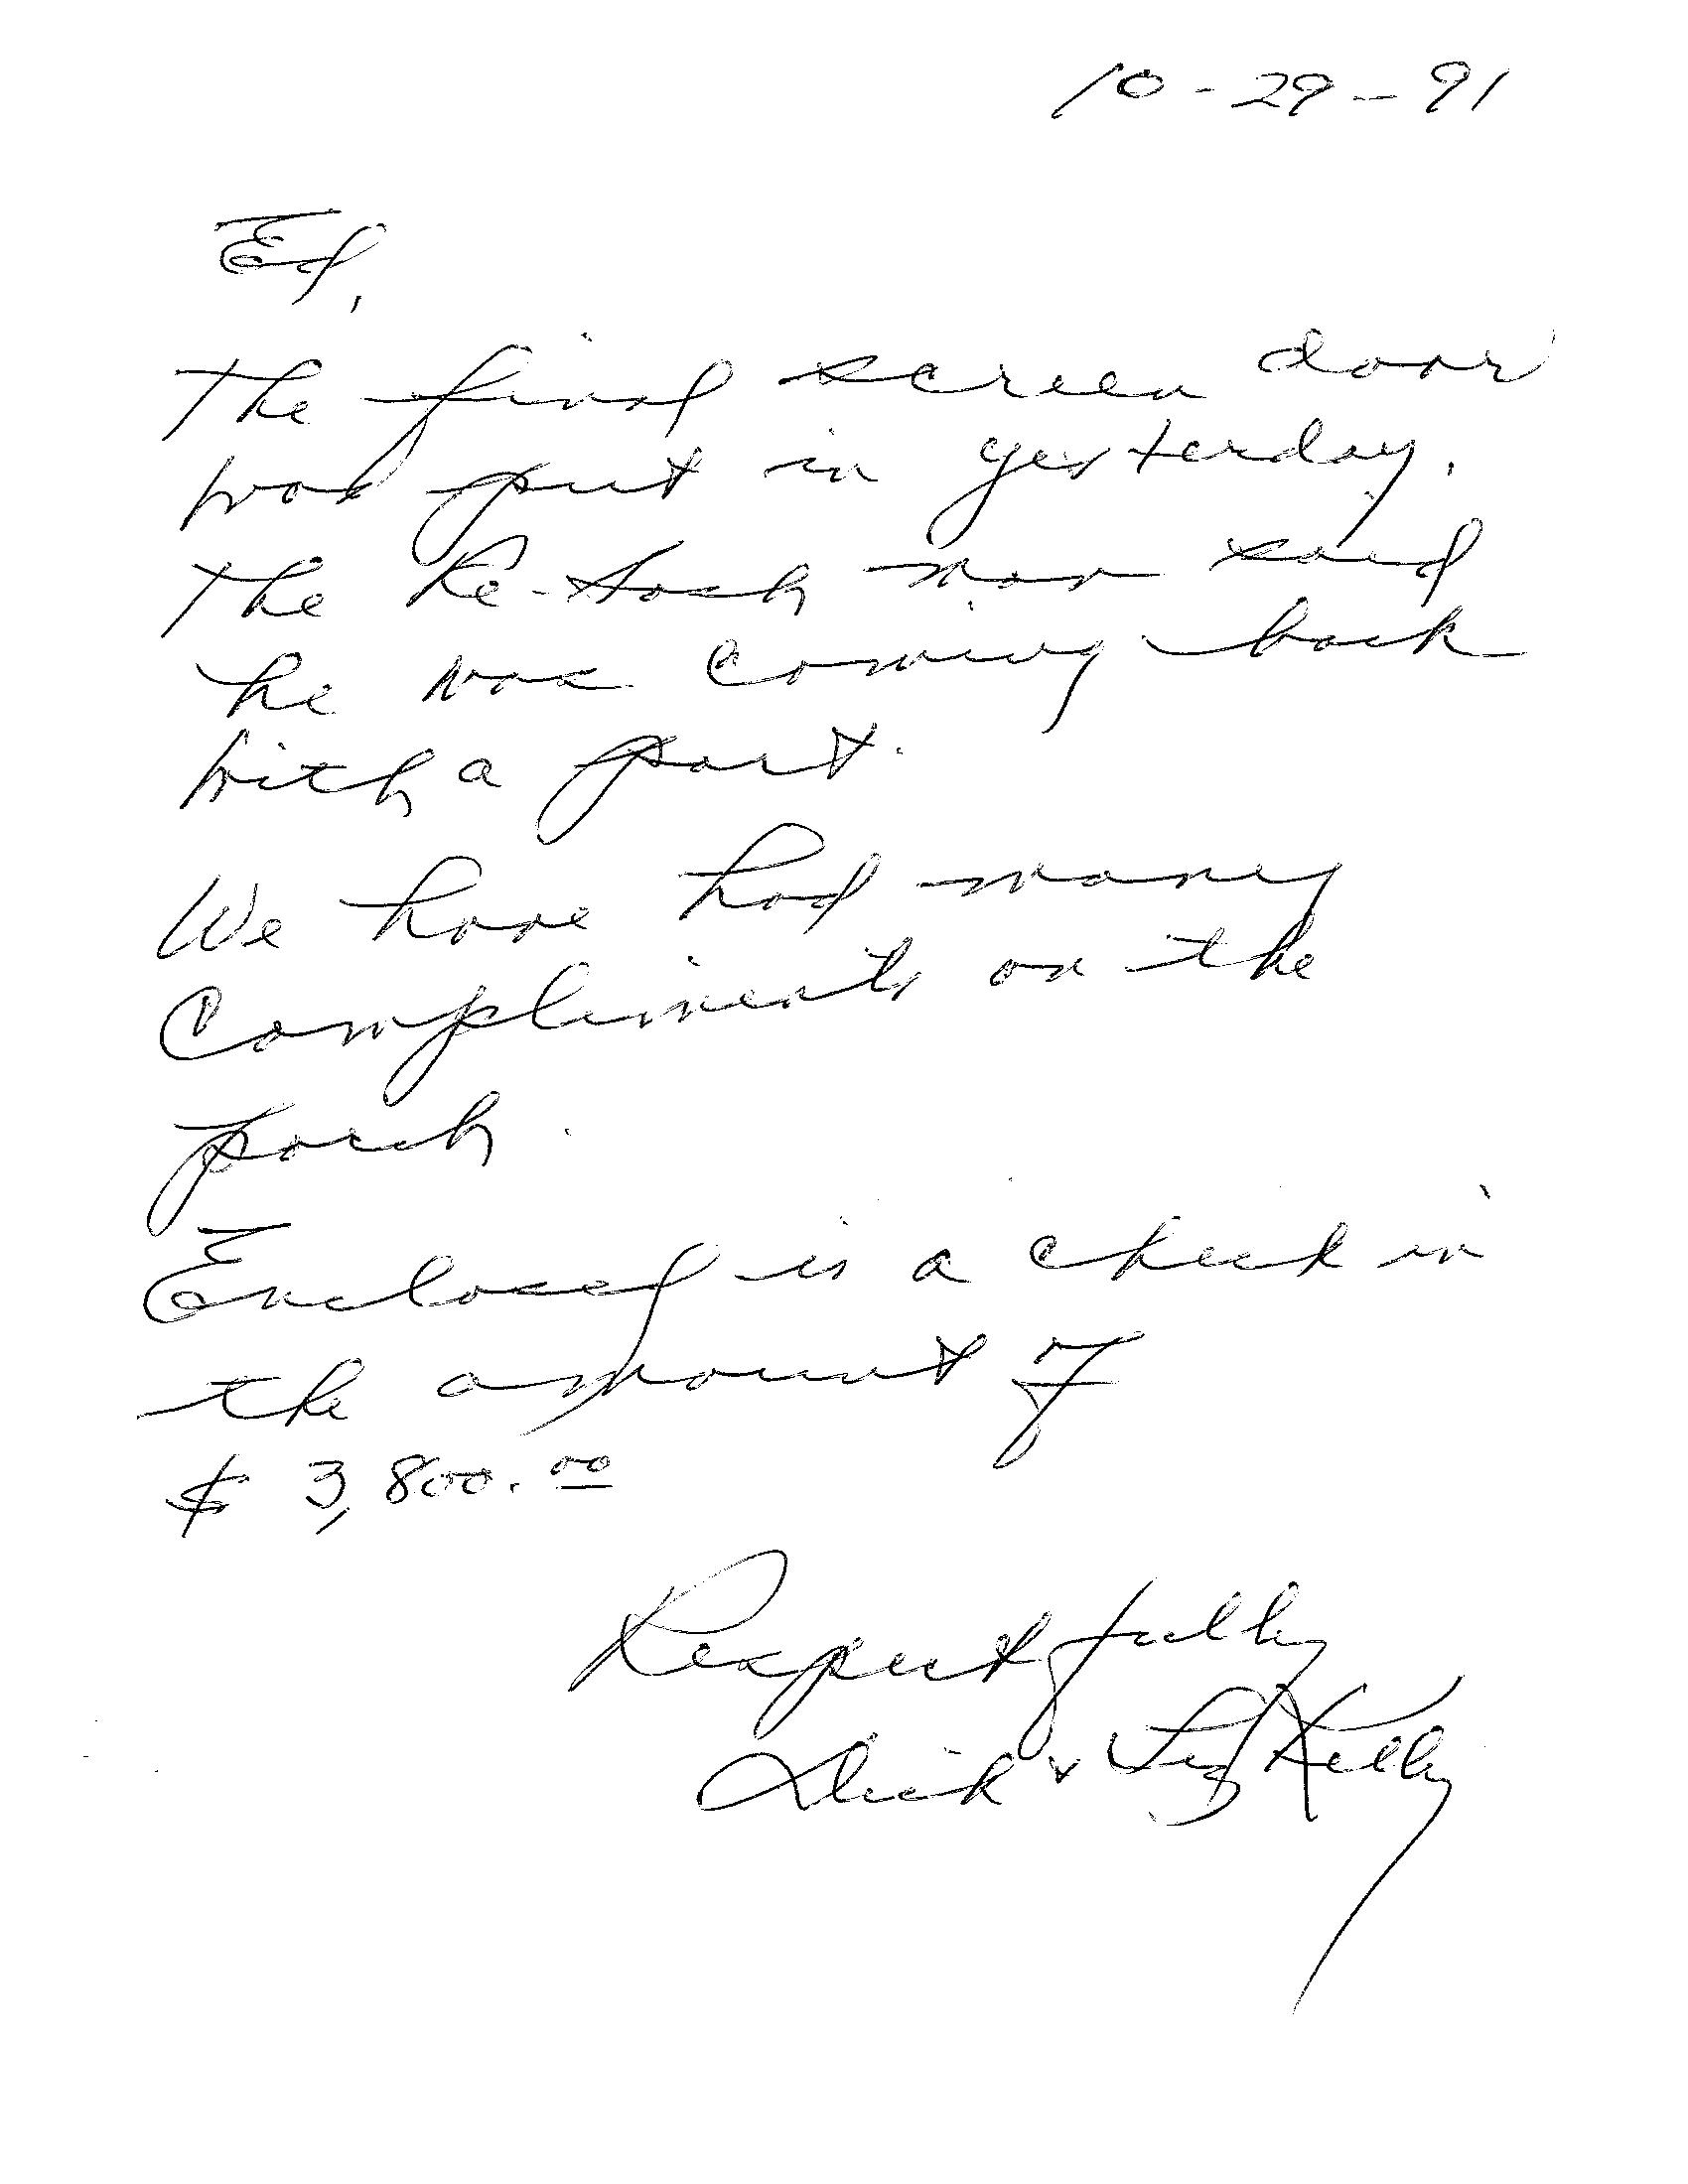 10-29-91
Ed,
The final screen door
was put in yesterday.
The man said
he was coming back
with a part.
We have had many
Compliments on the
porch.
Enclosed is a check in
the amount of
$ 3,800.00
Respectfully
Dick & Liz Kelly